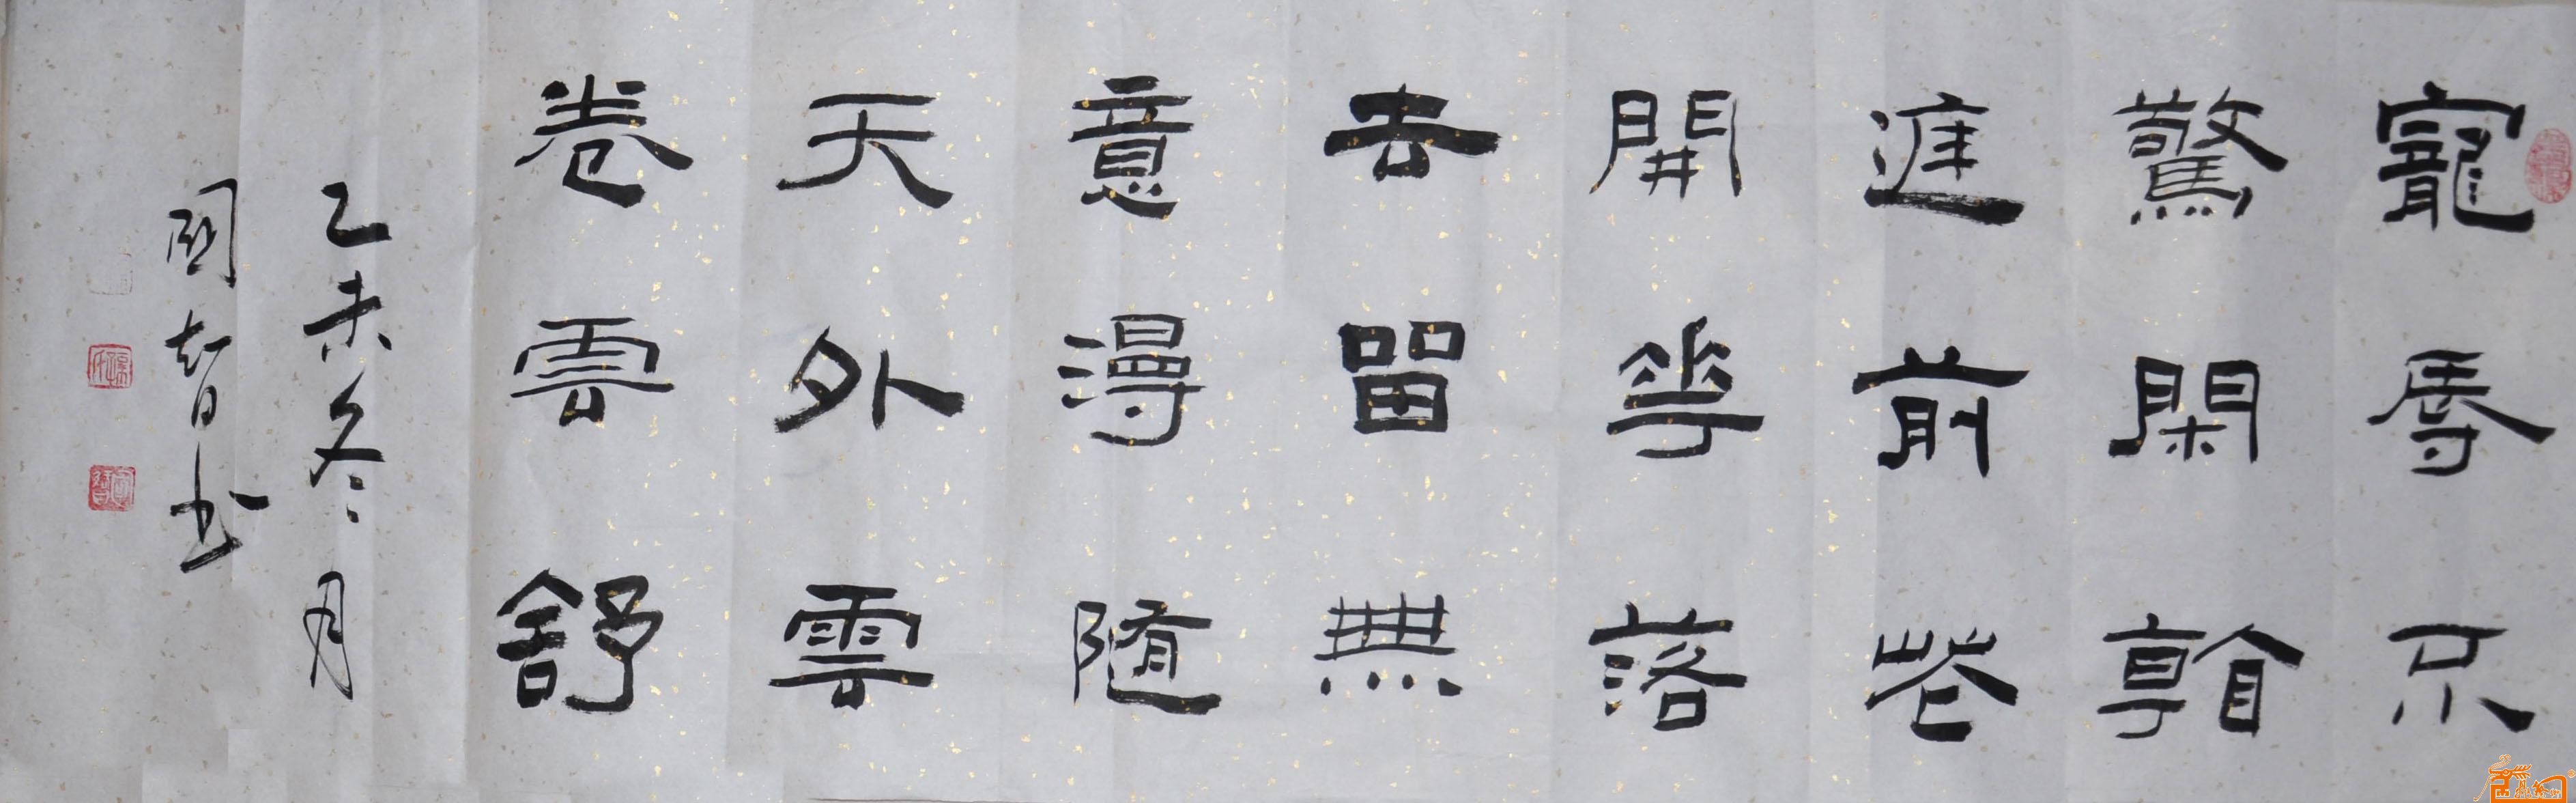 寵辱不
驚閑看
庭前花
開華落
去留無
意漫隨
天外雲
卷雲舒
乙未冬月
國智书